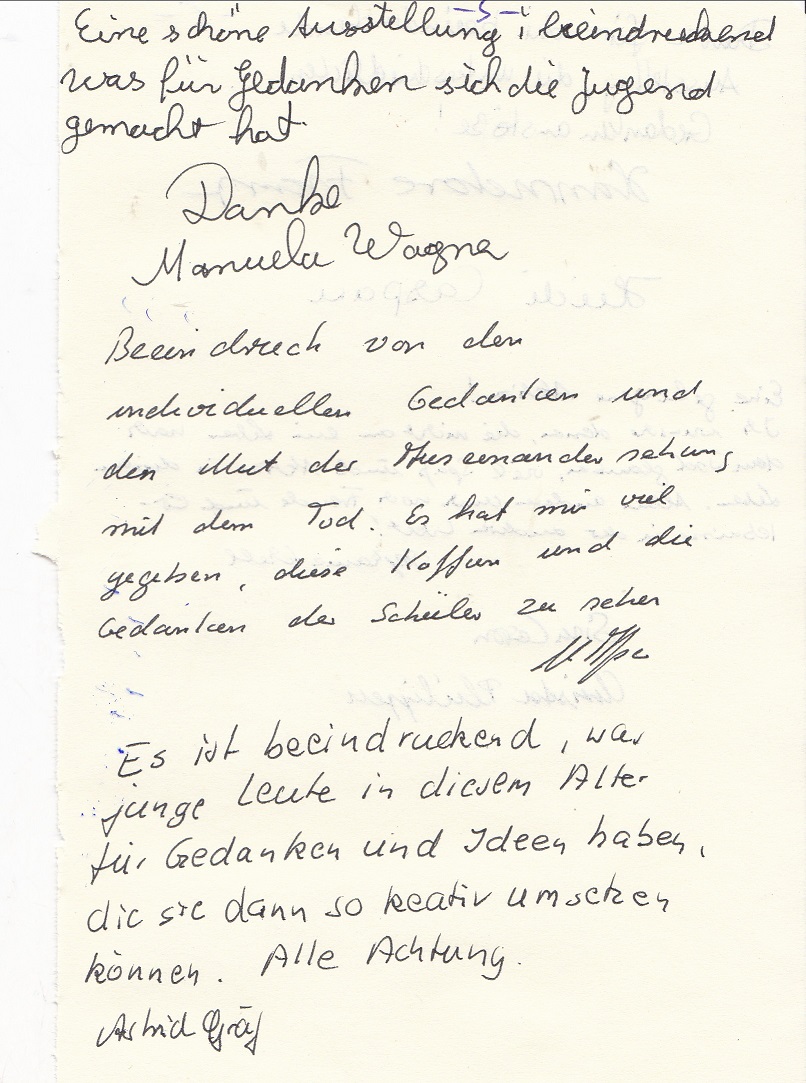 - 5 -
Eine schöne Ausstellung; beeindruckend
was für Gedanken sich die Jugend
gemacht hat.
Danke
Manuela Wagner
Beeindruck von den
individuellen Gedanken und
den Mut der Auseinandersetzung
mit dem Tod. Es hat mir viel
gegeben, diese Koffer und die
Gedanken der Schüler zu sehen
Es ist beeindruckend, was
junge Leute in diesem Alter
für Gedanken und Ideen haben,
die sie dann so keativ umsetzen
können. Alle Achtung.
Astrid Gräf